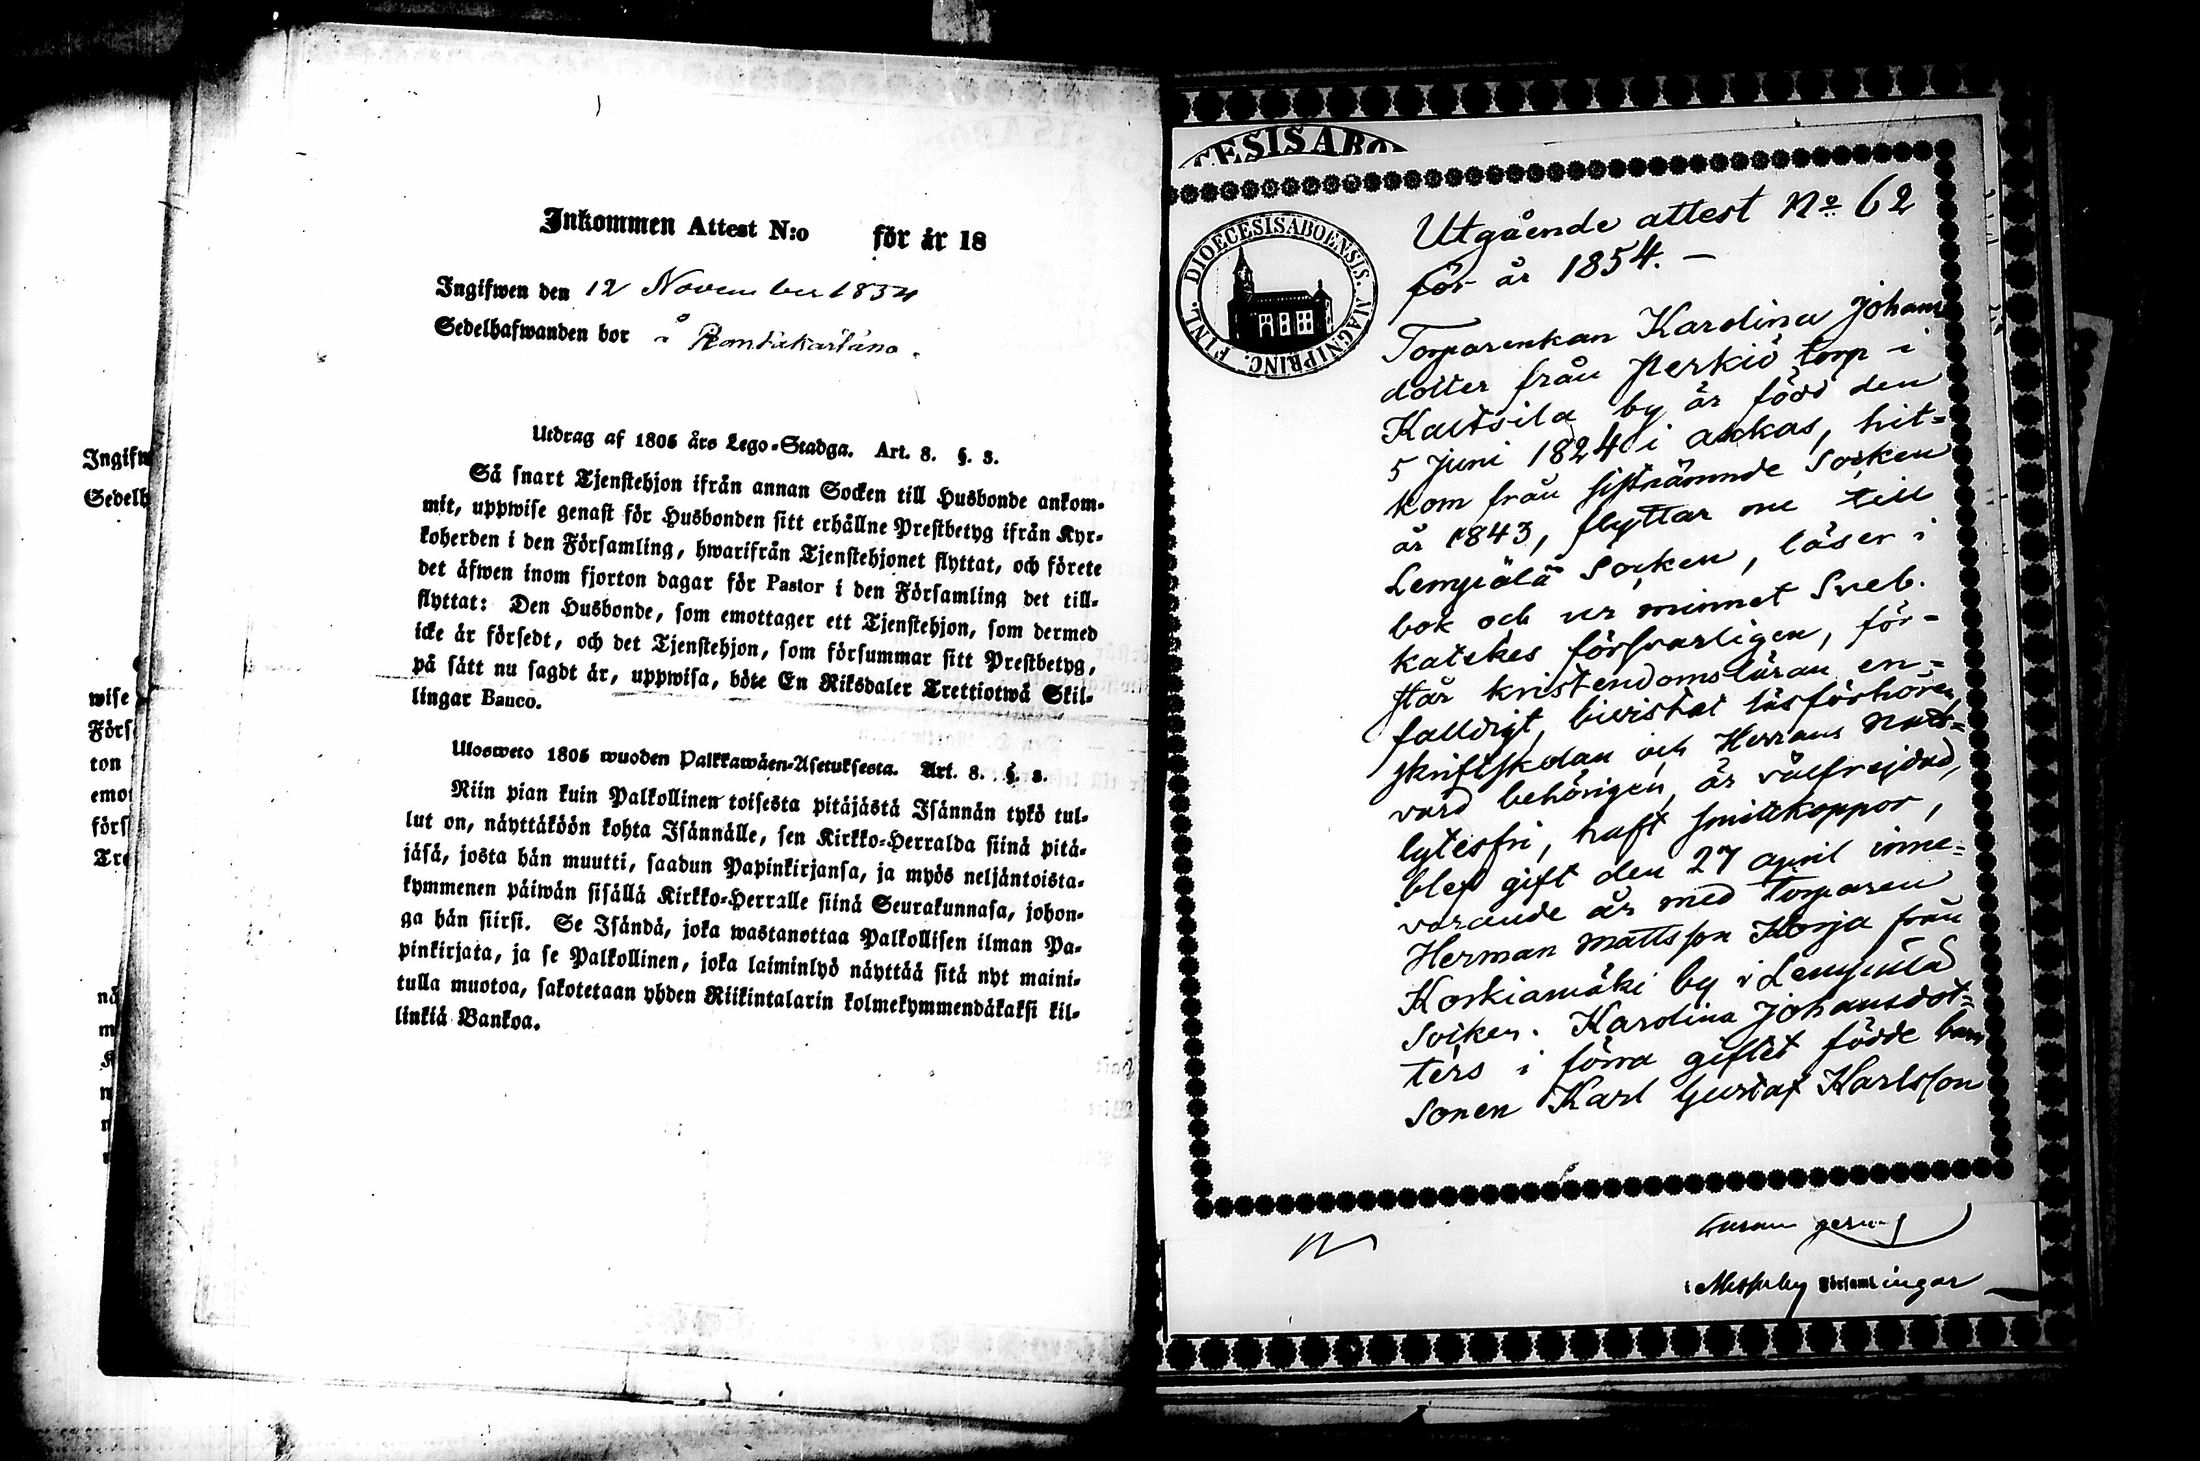 Inkommen Attest N:o för år 18
Ingifwen den 12 November 1854
Sedelhafwanden bor å Rantakartano.
Utdrag af 1805 års Lego-Stadga. Art. 8. §. 3.
Så snart Tjenstehjon ifrån annan Socken till Husbonde ankom-
mit, uppwise genast för Husbonden sitt erhållne Prestbetyg ifrån Kyr-
koherden i den Församling, hwarifrån Tjenstehjonet flyttat, och förete
det äfwen inom fjorton dagar för Pastor i den Församling det till-
flyttat: Den Husbonde, som emottager ett Tjenstehjon, som dermed
icke är försedt, och det Tjenstehjon, som försummar sitt Prestbetyg,
på sätt nu sagdt är, uppwisa, böte En Riksdaler Trettiotwå Skil-
lingar Banco.
Ulosweto 1805 wuoden Palkkawäen-Asetuksesta. Art. 8. §. 3.
Niin pian kuin Palkollinen toisesta pitäjästä Isännän tykö tul-
lut on, näyttäköön kohta Isännälle, sen Kirkko-Herralda siinä pitä-
jäsä, josta hän muutti, saadun Papinkirjansa, ja myös neljäntoista-
kymmenen päiwän sisällä Kirkko-Herralle siinä Seurakunnasa, johon-
ga hän siirsi. Se Isändä, joka wastanottaa Palkollisen ilman Pa-
pinkirjata, ja se Palkollinen, joka laiminlyö näyttää sitä nyt maini-
tulla muotoa, sakotetaan yhden Riikintalarin kolmekymmendäkaksi kil-
linkiä Bankoa.
Ingifw
Sedelh
wise
Förs
ton
emo
förs
Tre
CESISABO
FINL. DIOECESISABOENSIS. MAGNIPRINC.
Utgående attest No 62
för år 1854. –
Torparenkan Karolina Johans
dotter från Perkiö torp i
Kaitsila by är född den
5 Juni 1824 i Akkas, hit-
kom från sistnämnde Socken
år 1843, flyttar nu till
Lempiälä Socken, läser i
bok och ur minnet Sveb.
katekes försvarligen, för-
står kristendomsläran en-
falldigt, bivistat läsförhören,
skriftskolan och Herrans Natt-
vard behörigen, är välfrejdad,
lytesfri, haft smittkoppor,
blef gift den 27 april inne-
varande år med Torparen
Herman Mattsson Korja från
Korkiamäki by i Lempiälä
Socken. Karolina Johansdot-
ters i förra giftet födde barn
sonen Karl Gustaf Karlsson
i Messuby Församlingar